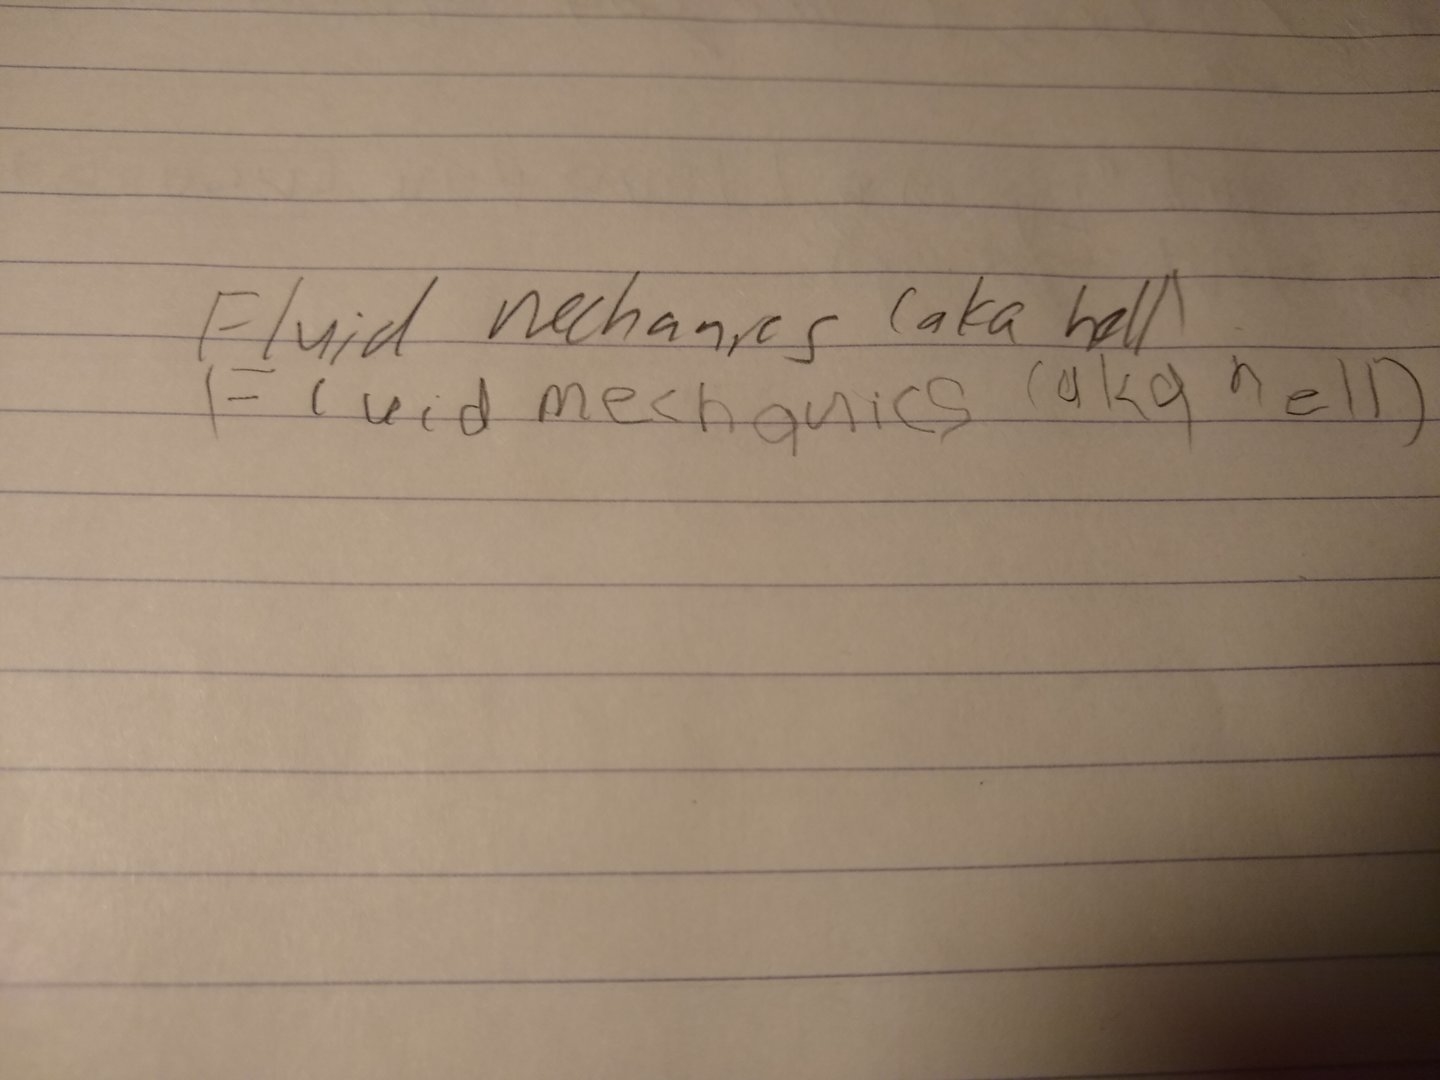 Fluid mechanics (aka hell)
Fluid mechanics (aka hell)